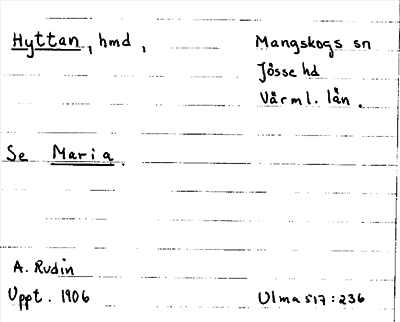 Hyttan, hmd,
Mangskogs sn
Jösse hd
Värml. län.
Se Maria.
A. Rudin
Uppt. 1906
Ulma 517:236